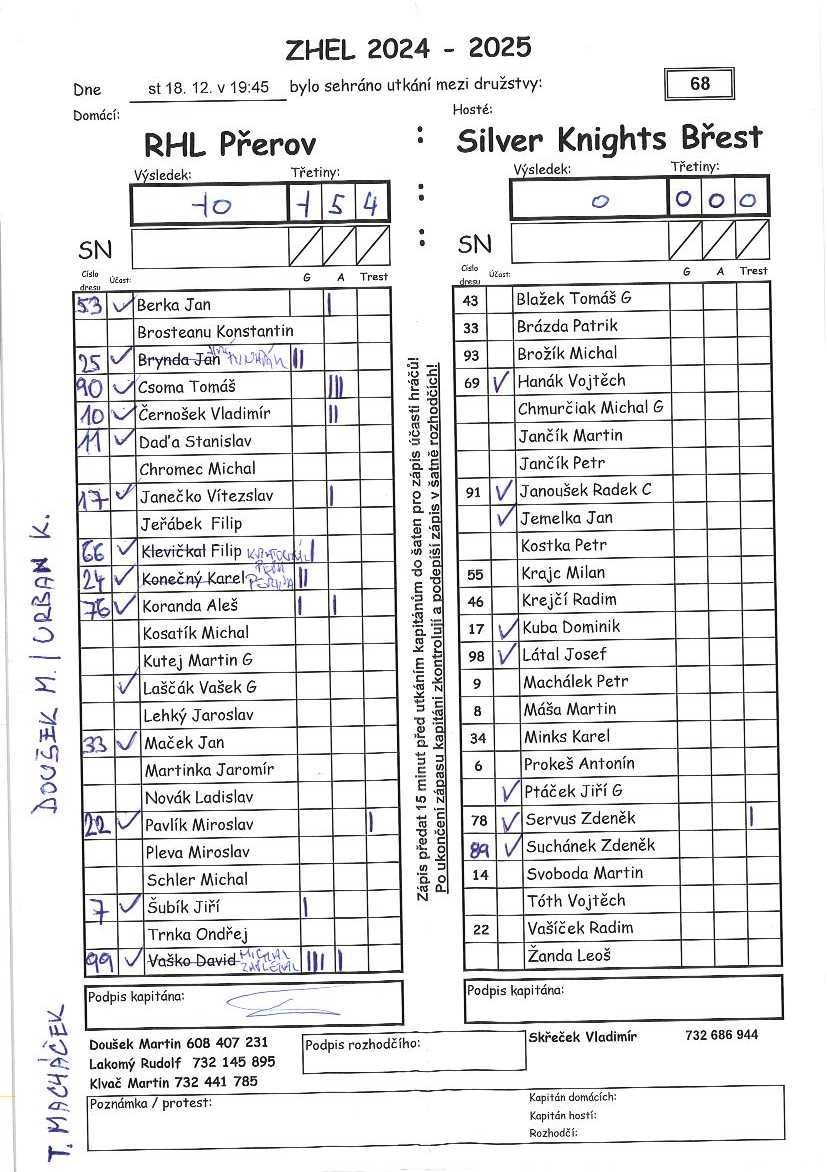 ZHEL 2024 - 2025
Dne st 18. 12. v 19:45 bylo sehráno utkání mezi družstvy: 68
Domácí: Hosté:
RHL Přerov : Silver Knights Břest
Výsledek: Třetiny: Výsledek: Třetiny:
10 1 5 4 : 0 0 0 0
SN : SN
Číslo dresu Účast: G A Trest Číslo dresu Účast: G A Trest
53 ✓ Berka Jan |
Brosteanu Konstantin
25 ✓ Brynda Jan ||
90 ✓ Csoma Tomáš |||
10 ✓ Černošek Vladimír ||
11 ✓ Daďa Stanislav
Chromec Michal
17 ✓ Janečko Vítezslav |
Jeřábek Filip
66 ✓ Klevičkal Filip |
24 ✓ Konečný Karel ||
76 ✓ Koranda Aleš | |
Kosatík Michal
Kutej Martin G
✓ Laščák Vašek G
Lehký Jaroslav
33 ✓ Maček Jan
Martinka Jaromír
Novák Ladislav
22 ✓ Pavlík Miroslav |
Pleva Miroslav
Schler Michal
7 ✓ Šubík Jiří |
Trnka Ondřej
99 ✓ Vaško David MICHAL ||| |
43 Blažek Tomáš G
33 Brázda Patrik
93 Brožík Michal
69 ✓ Hanák Vojtěch
Chmurčiak Michal G
Jančík Martin
Jančík Petr
91 ✓ Janoušek Radek C
✓ Jemelka Jan
Kostka Petr
55 Krajc Milan
46 Krejčí Radim
17 ✓ Kuba Dominik
98 ✓ Látal Josef
9 Machálek Petr
8 Máša Martin
34 Minks Karel
6 Prokeš Antonín
✓ Ptáček Jiří G
78 ✓ Servus Zdeněk |
89 ✓ Suchánek Zdeněk
14 Svoboda Martin
Tóth Vojtěch
22 Vašíček Radim
Žanda Leoš
Zápis předat 15 minut před utkáním kapitánům do šaten pro zápis účasti hráčů!
Po ukončení zápasu kapitáni zkontrolují a podepíší zápis v šatně rozhodčích!
DOUŠEK M. / URBAN K.
T. MACHÁČEK
Podpis kapitána: Podpis kapitána:
Doušek Martin 608 407 231 Podpis rozhodčího: Skřeček Vladimír 732 686 944
Lakomý Rudolf 732 145 895
Klvač Martin 732 441 785
Poznámka / protest: Kapitán domácích:
Kapitán hostí:
Rozhodčí: